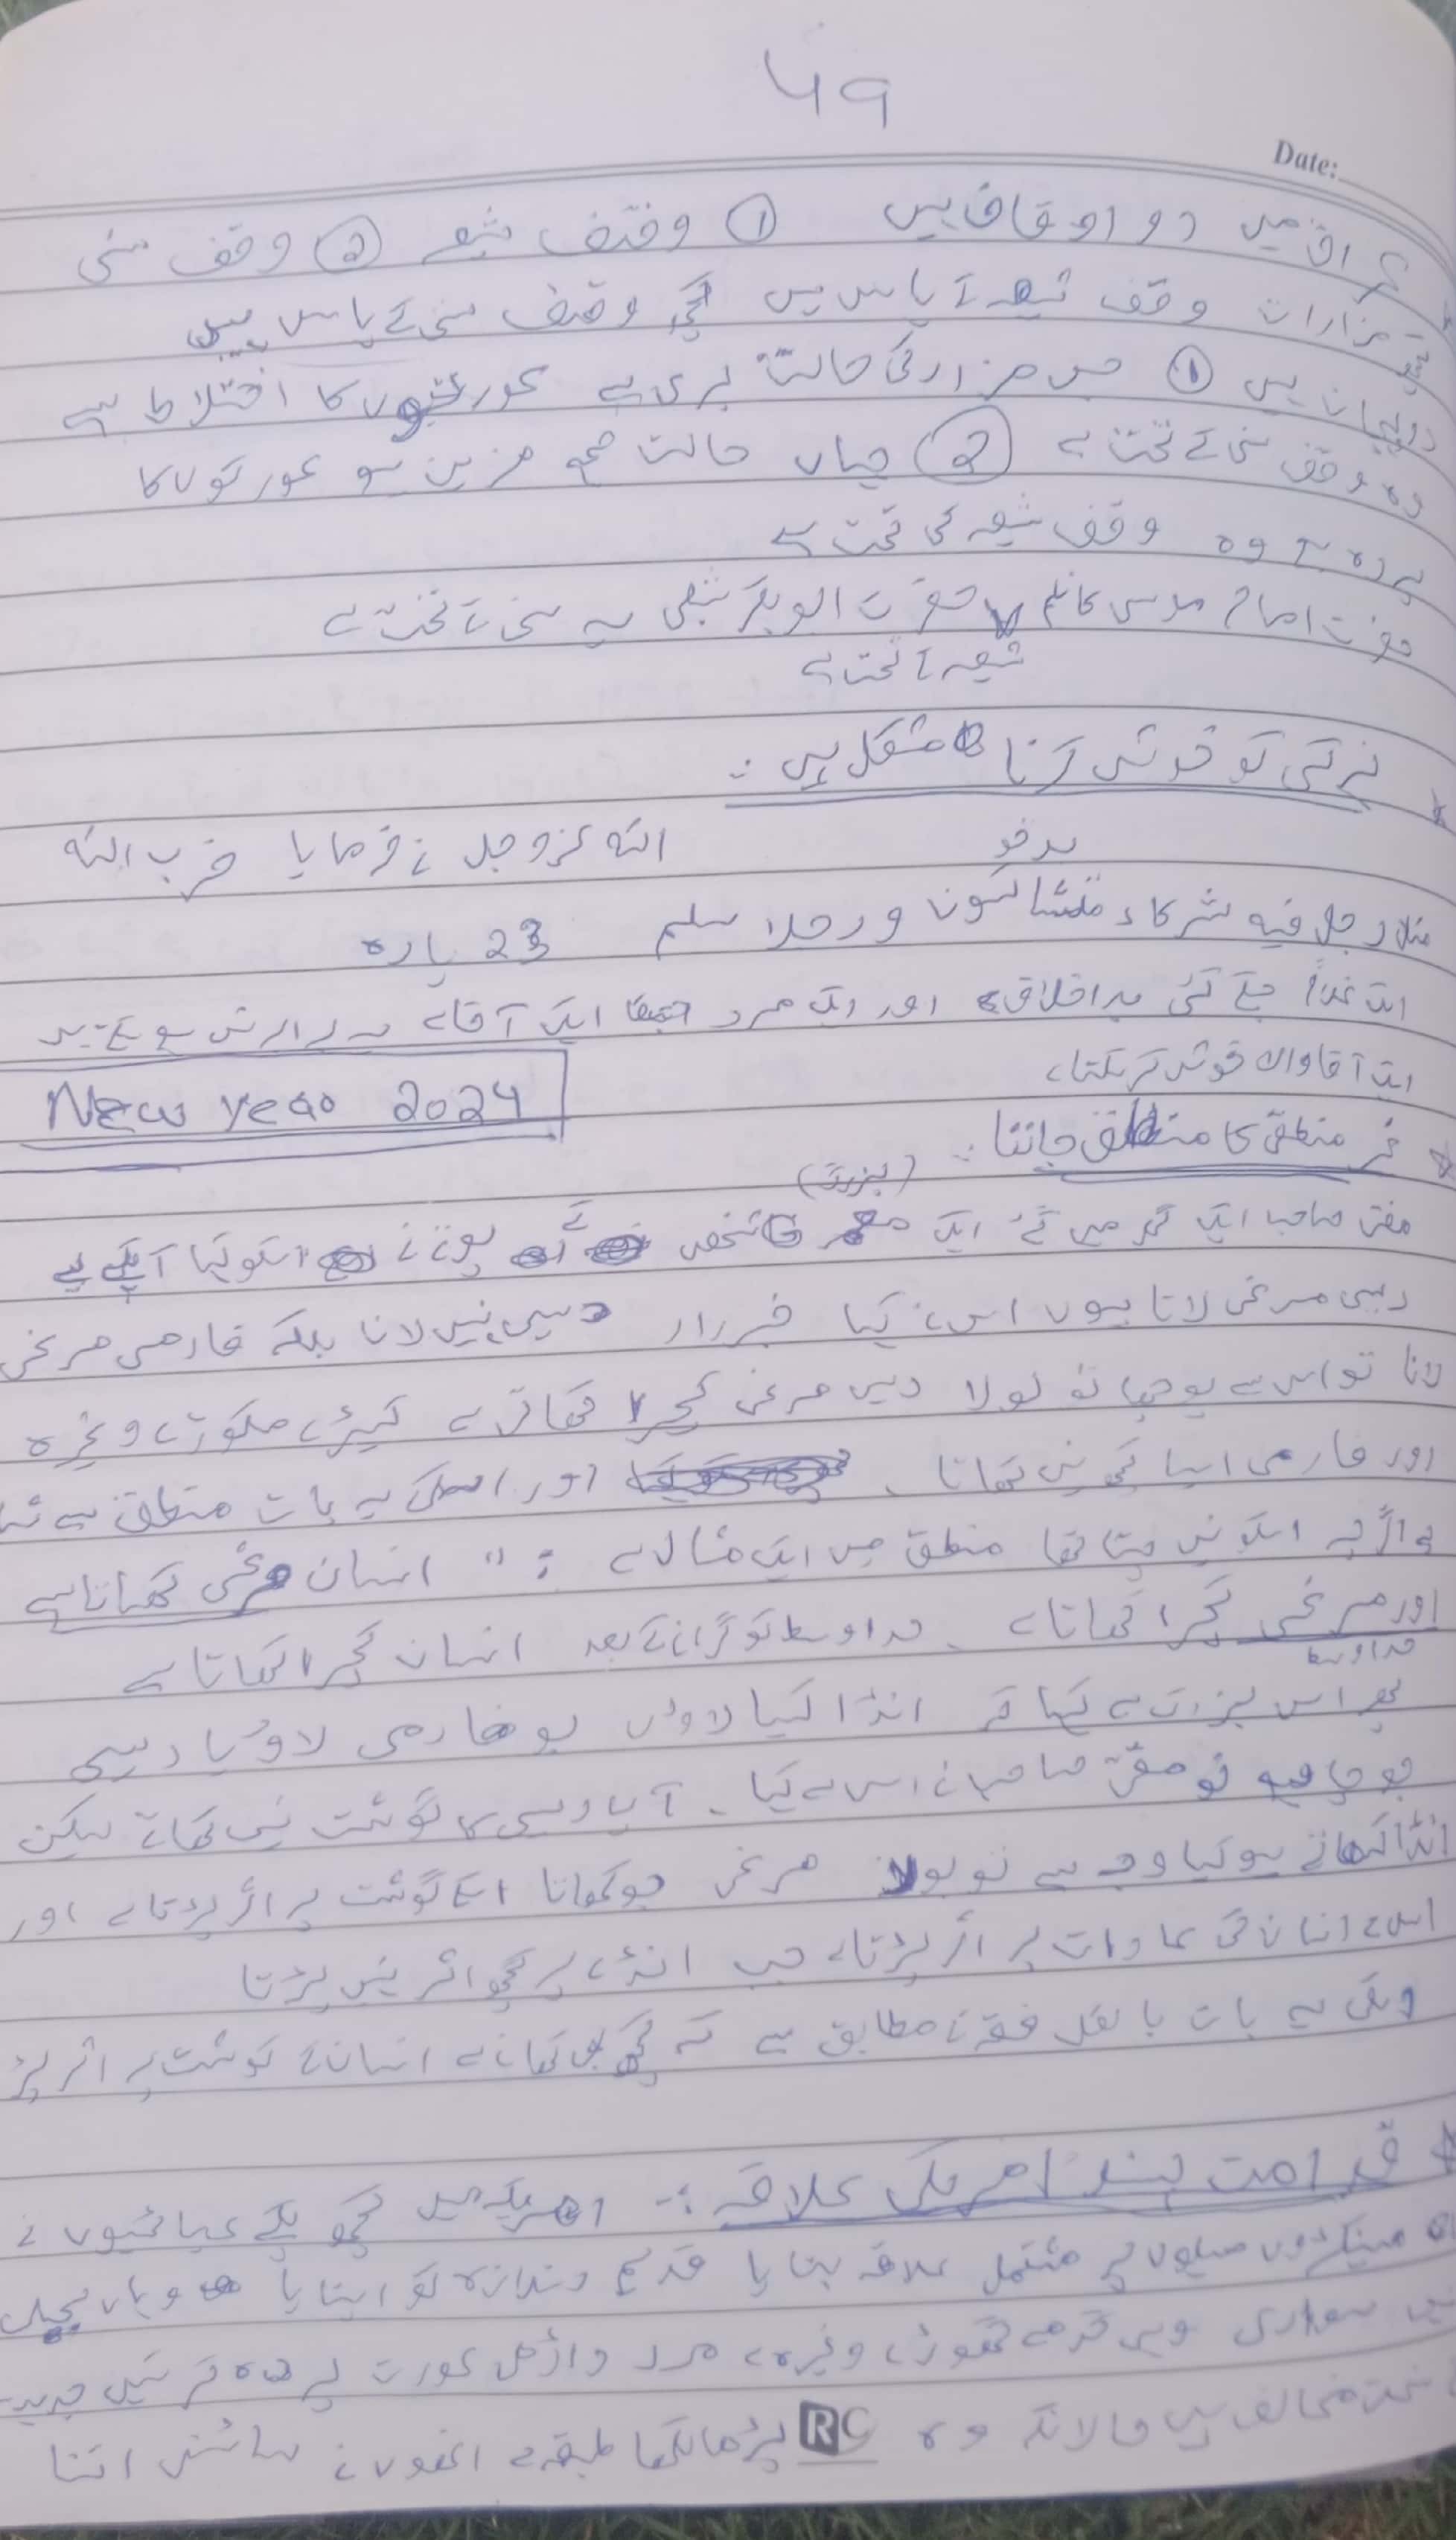 ۵۹
Date:
عراق میں دو اوقاف ہیں ① وقف شیعہ ② وقف سنی
مزارات وقف شیعہ کے پاس ہیں کچھ وقف سنی کے پاس ہیں
پہچان ہیں ① جس مزار کی حالت بری ہے عورتوں کا اختلاط ہے
وہ وقف سنی کے تحت ہے ② جہاں حالت صحیح مزین ہو عورتوں کا
پردہ ہے وہ وقف شیعہ کی تحت ہے
حضرت امام موسی کاظم حضرت ابوبکر شبلی یہ سنی کے تحت ہے
شیعہ کے تحت ہے
کو خوش کرنا مشکل ہیں :
اللہ عزوجل نے فرمایا ضرب اللہ
مثلا رجل فیہ شرکاء متشاکسون و رجلا سلم 23 پارہ
ایک غلام جسکے کئی بد اخلاق اور ایک مرد جسکا ایک آقا ہے یہ برابر
ایک آقا والا خوش کر سکتا ہے
New year 2024
غیر منطقی کا منطق جاننا :
(بزرگ)
مفتی صاحب ایک گھر میں گئے ایک شخص کے پوتے نے اسکو کہا آپکے لیے
دیسی مرغی لاتا ہوں اس نے کہا خبردار دیسی نہیں لانا بلکہ فارمی مرغی
لانا تو اس سے پوچھا تو بولا دیسی مرغی کچرا کھاتی ہے کیڑے مکوڑے وغیرہ
اور فارمی ایسا کچھ نہیں کھاتا . اور اسکی یہ بات منطق سے
اگرچہ اسکو نہیں پتا تھا منطق میں ایک مثال ہے : " انسان مرغی کھاتا ہے
اور مرغی کچرا کھاتا ہے . حد اوسط کو گرانے کے بعد انسان کچرا کھاتا ہے
حد اوسط
پھر اس بزرگ سے کہا کہ انڈا کیا لاؤں بو فارمی لاؤ یا دیسی
جو چاہیے تو مفتی صاحب نے اس سے کہا . آپ دیسی کا گوشت نہیں کھاتے لیکن
انڈا کھاتے ہو کیا وجہ ہے تو بولا مرغی جو کھاتا اسکے گوشت پر اثر پڑتا ہے اور
اس سے انسان کی عادات پر اثر پڑتا ہے جب انڈے پر کچھ اثر نہیں پڑتا
یہ بات بالکل فقہ کے مطابق ہے کہ کچھ بھی کھانے سے انسان کے گوشت پر اثر پڑ
قدامت پسند امریکی علاقہ :- امریکہ میں کچھ پکے عیسائیوں نے
سینکڑوں میلوں پر مشتمل علاقہ بنایا قدیم انداز کو اپنایا وہاں بجلی
سواری وہی گدھے گھوڑے وغیرہ ، مرد داڑھی عورت پردہ کرتیں جدید
سخت مخالف ہیں حالانکہ وہ پڑھا لکھا طبقہ ہے انھوں نے سائنس اتنا